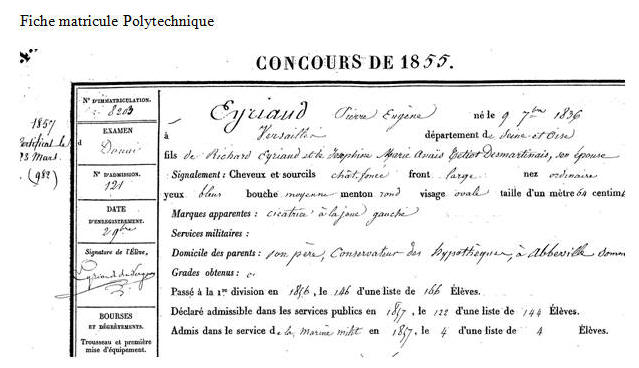 Fiche matricule Polytechnique
CONCOURS DE 1855.
N° D'IMMATRICULATION.
8203
EXAMEN
d Douai
N° D'ADMISSION.
121
DATE
D'ENREGISTREMENT.
29bre
Signature de l'Élève,
BOURSES
ET DÉGRÈVEMENTS.
Trousseau et première
mise d'équipement.
1857
13 Mars.
(982)
Eyriaud Pierre Eugène né le 9 7bre 1836
à Versailles département de Seine et Oise
fils de Richard Eyriaud et de Joséphine Marie Anaïs Desmartinais, son épouse
Signalement : Cheveux et sourcils chât. foncé front large nez ordinaire
yeux bleus bouche moyenne menton rond visage ovale taille d'un mètre 64 centim
Marques apparentes : cicatrice à la joue gauche
Services militaires :
Domicile des parents : son père, Conservateur des hypothèques, à Abbeville
Grades obtenus :
Passé à la 1re division en 1856, le 146 d'une liste de 166 Élèves.
Déclaré admissible dans les services publics en 1857, le 122 d'une liste de 144 Élèves.
Admis dans le service de la marine milit en 1857, le 4 d'une liste de 4 Élèves.